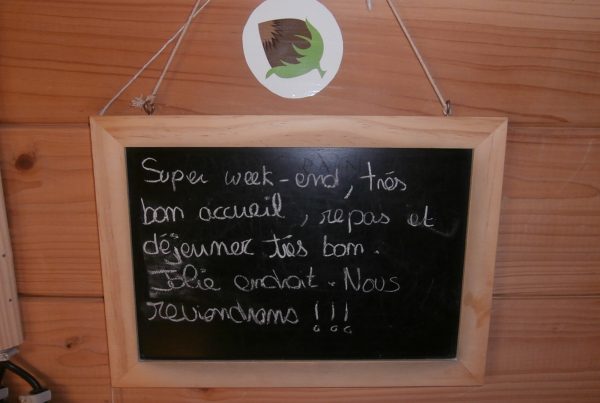 Super week-end, très
bon accueil, repas et
déjeuner très bon.
Jolie endroit. Nous
reviendrons !!!